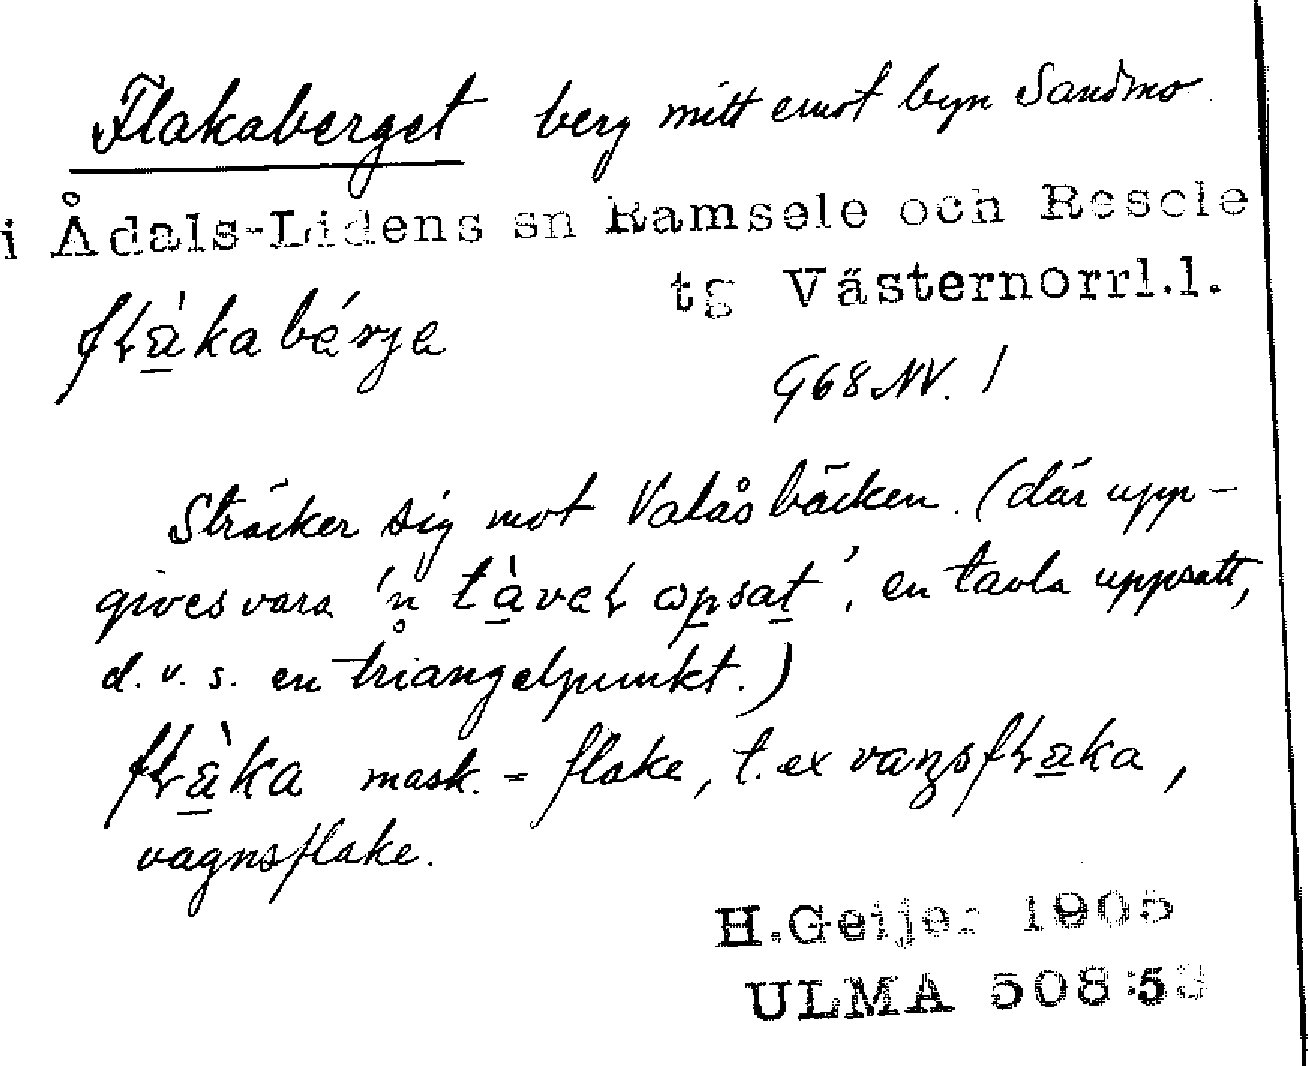 Flakaberget berg mitt emot byn Sandmo
i Ådals-Lidens sn Ramsele och Resele
tg Västernorrl.l.
fɽàkabérje
G68NV. 1
Sträcker sig mot Valåsbäcken. (där upp-
gives vara 'n̥ tàveɽ opsat', en tavla uppsatt,
d.v.s. en triangelpunkt.)
fɽàka mask. = flake, t.ex vaŋsfɽaka,
vagnsflake.
H.Geijer 1905
ULMA 508:53